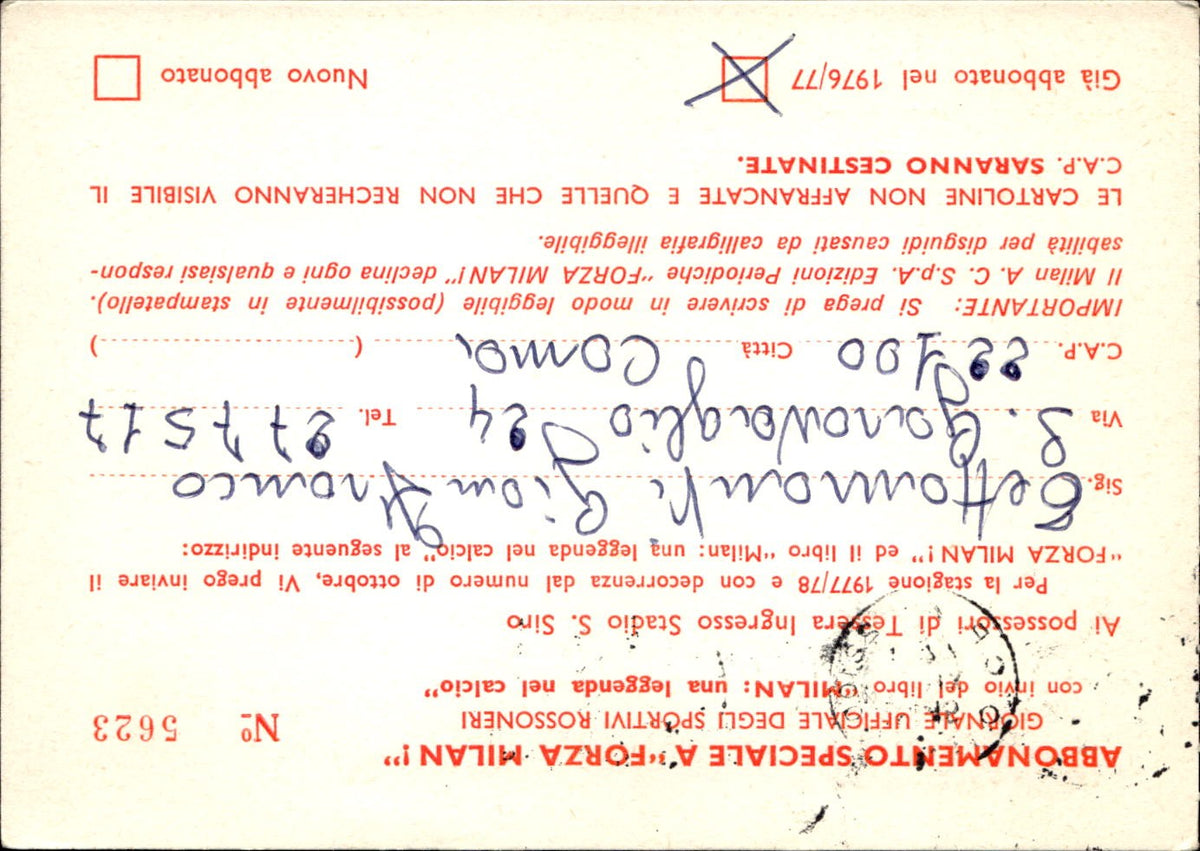 ABBONAMENTO SPECIALE A “FORZA MILAN!”
GIORNALE UFFICIALE DEGLI SPORTIVI ROSSONERI
Nº 5623
con invio del libro “MILAN: una leggenda nel calcio”
Ai possessori di Tessera Ingresso Stadio S. Siro
Per la stagione 1977/78 e con decorrenza dal numero di ottobre, Vi prego inviare il
“FORZA MILAN!” ed il libro “Milan: una leggenda nel calcio” al seguente indirizzo:
Sig. Tettamanti Gian Franco
Via S. Garovaglio 24 Tel. 277517
C.A.P. 22100 Città Como (                )
IMPORTANTE: Si prega di scrivere in modo leggibile (possibilmente in stampatello).
Il Milan A. C. S.p.A. Edizioni Periodiche “FORZA MILAN!” declina ogni e qualsiasi respon-
sabilità per disguidi causati da calligrafia illeggibile.
LE CARTOLINE NON AFFRANCATE E QUELLE CHE NON RECHERANNO VISIBILE IL
C.A.P. SARANNO CESTINATE.
Già abbonato nel 1976/77
Nuovo abbonato